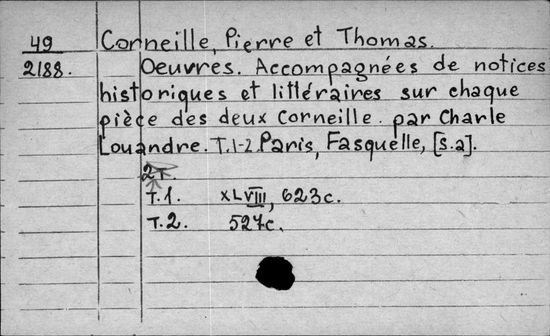 49 Corneille, Pierre et Thomas.
2188. Oeuvres. Accompagnées de notices
historiques et littéraires sur chaque
pièce des deux Corneille. par Charle
Louandre. T.1-2. Paris, Fasquelle, [s.a].
2т.
T.1. XLVIII, 623c.
T.2. 527c.